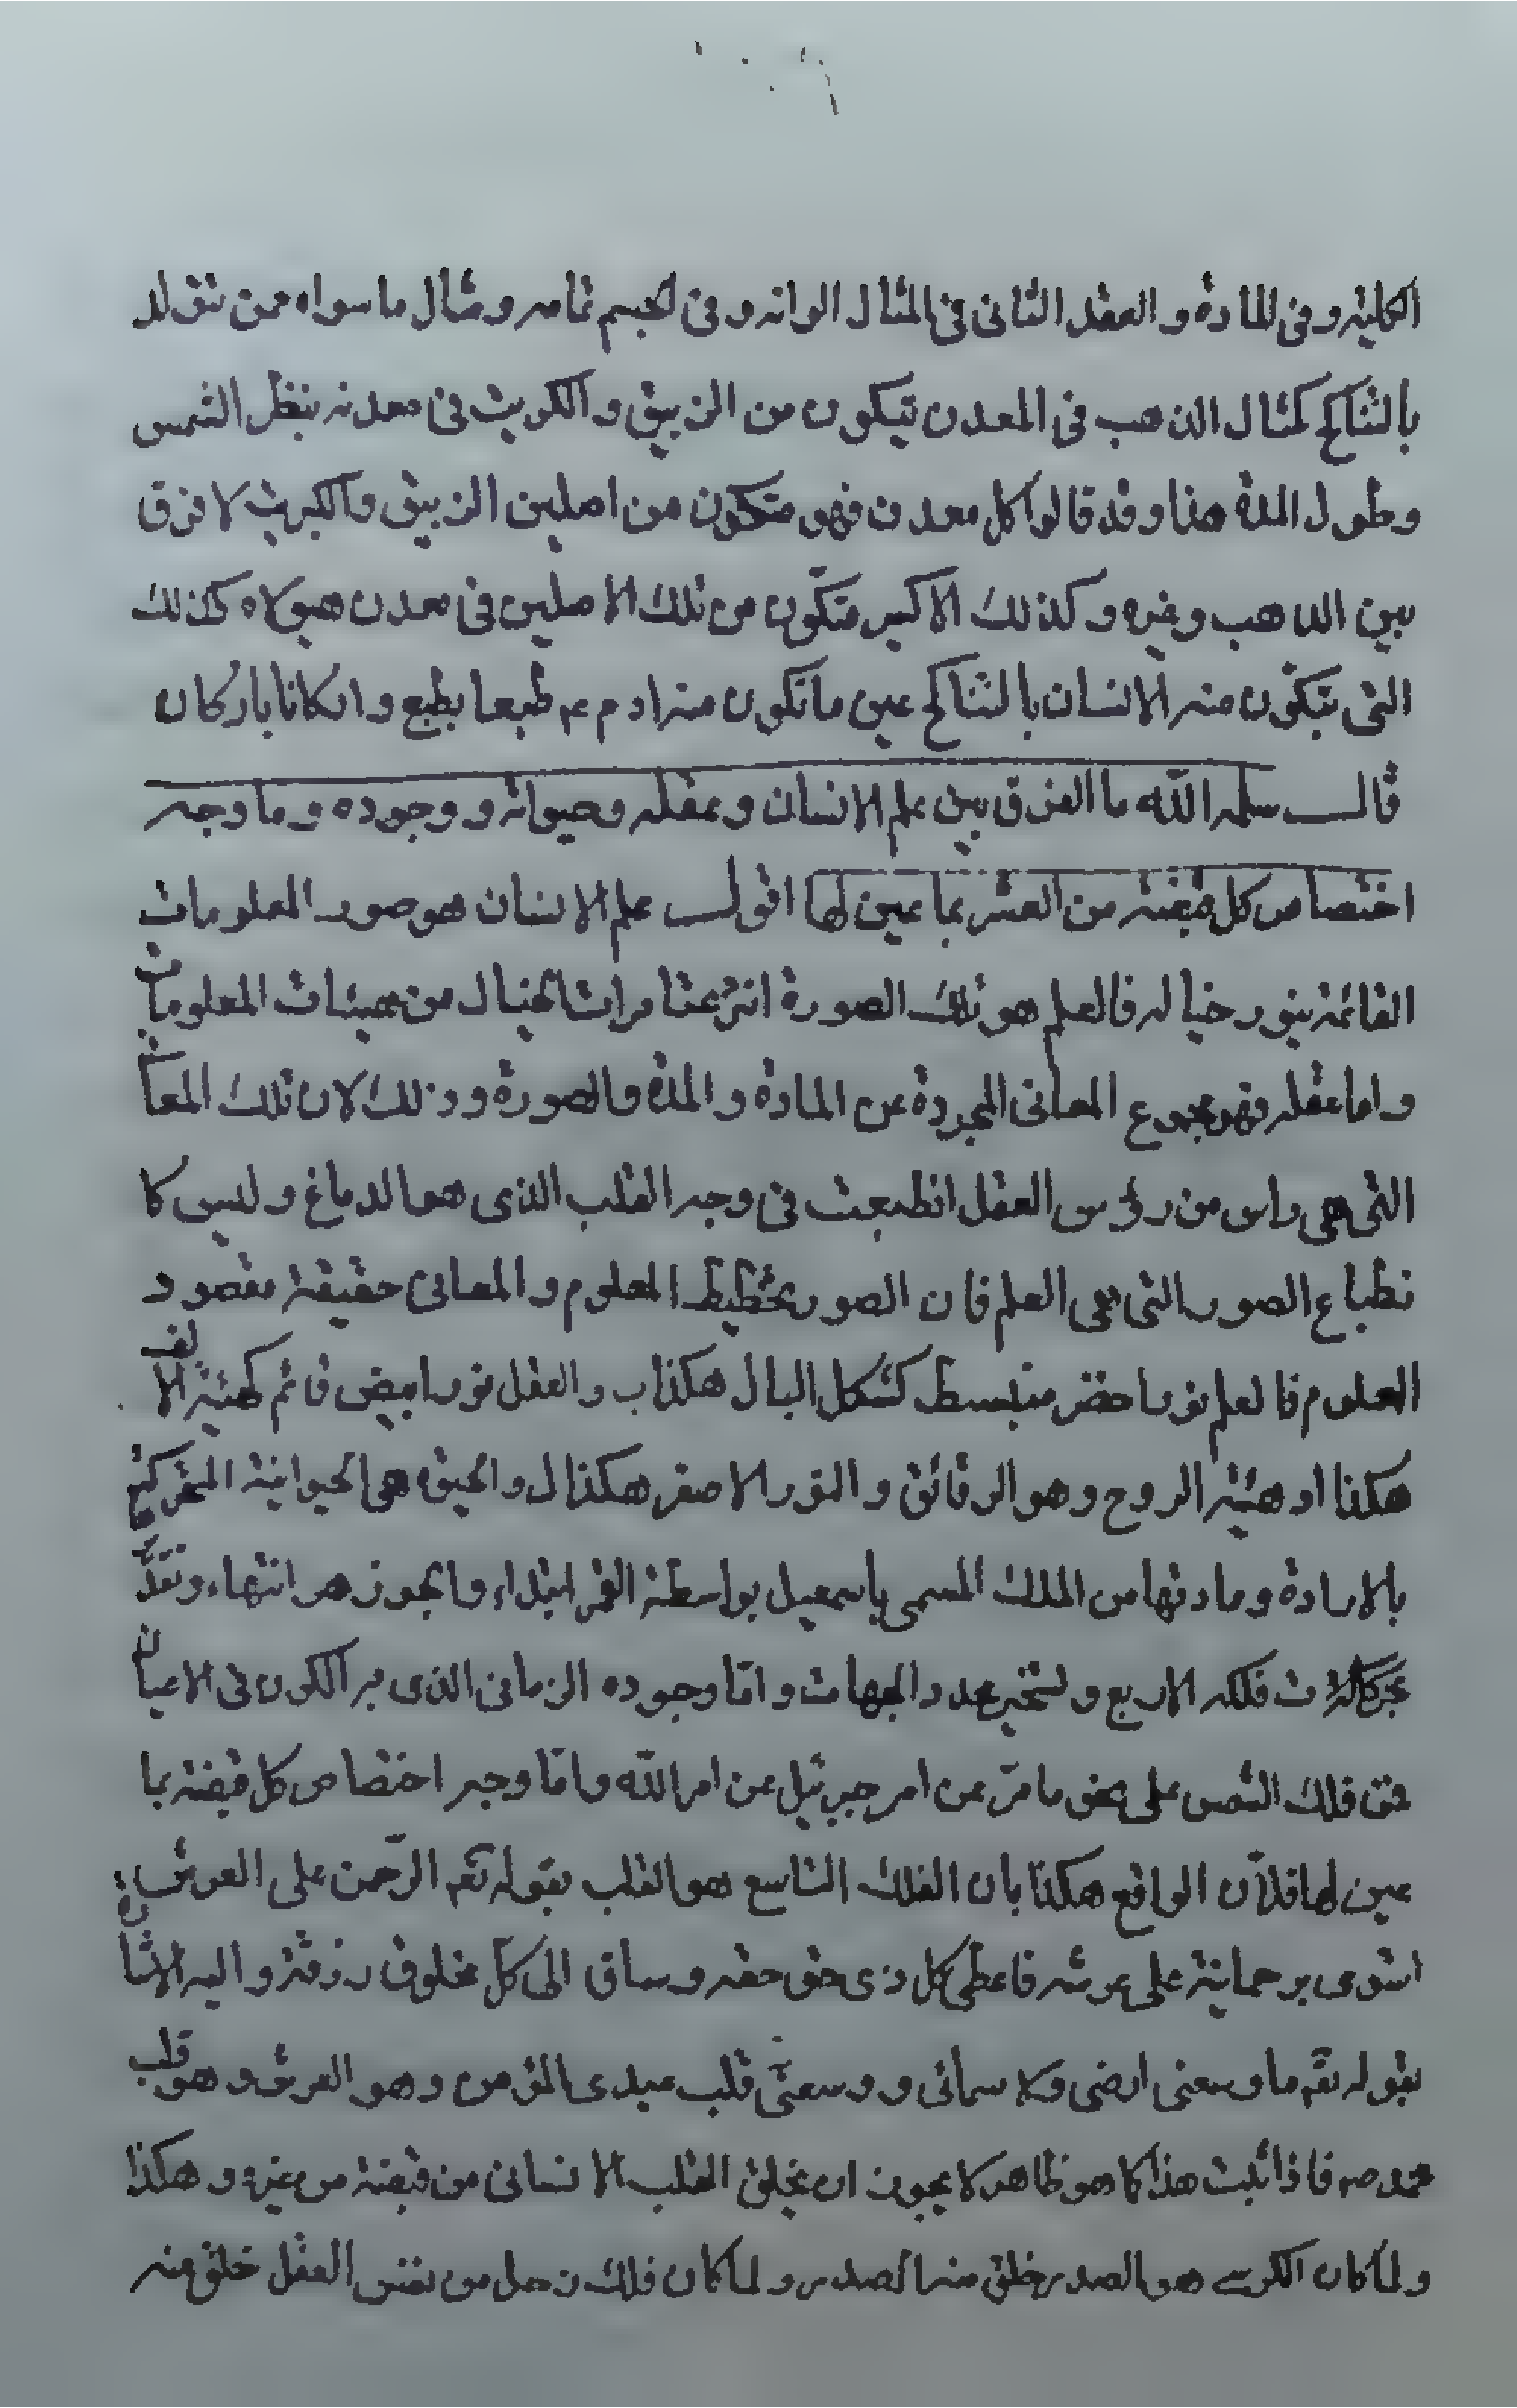 الكلية وفى المادة و العقد الثانى فى المثال الوانه و فى الجسم تمامه و مثال ما سواه ممن تولد
بالتناكح كمثال الذهب فى المعدن يتكون من الزيبق و الكبريت فى معدنه بنظر الشمس
وطول المدة هذا وقد قالوا كل معدن فهو متكون من اصلين الزيبق والكبريت لا فرق
بين الذهب وغيره و كذلك الاكسير متكوّن من تلك الاصلين فى معدن هيولاه كذلك
التى يتكوّن منه الانسان بالتناكح عين ما تكون منه ادم ع طبعا بطبع و اركانا باركان
قال سلمه اللّه ما الفرق بين علم الانسان وعقله وحيواته و وجوده و ما وجه
اختصاص كل قبضة من العشر بما عين لها اقول علم الانسان هو صور المعلومات
القائمة بنور خياله فالعلم هو تلك الصورة انتزعتا مرات الخيال من هيئات المعلومات
و اما عقله فهو مجموع المعانى المجردة عن المادة و المدة والصورة و ذلك لان تلك المعانى
التى هى راس من رؤس العقل انطبعت فى وجه القلب الذى هو الدماغ و ليس كا
نطباع الصور التى هى العلم فان الصور تخطيط المعلوم و المعانى حقيقة مقصود
المعلوم فالعلم نور اخضر منبسط كشكل البال هكذا ب و العقل نور ابيض قائم كهيئة الالف
هكذا ا و هيئة الروح وهو الرقائق و النور الاصفر هكذا ل و الحيوة هى الحيوانية المتحركة
بالارادة و مادتها من الملك المسمى باسمعيل بواسطة القمر ابتداء و الجوزهر انتهاء و تقدّ
فلكه الاربع و لتحير عدد الجهات و امّا وجوده الزمانى الذى به الكون فى الاعيان
فمن فلك الشمس على نحو ما مرّ عن امر جبرئيل عن امر اللّه و امّا وجه اختصاص كل قبضة بما
عين لها فلأن الواقع هكذا بان الفلك التاسع هو القلب بقوله تع الرّحمن على العرش
استوى برحمانيته على عرشه فاعطى كل ذى حق حقه و ساق الى كلّ مخلوق رزقه و اليه الاشارة
بقوله تع ما وسعنى ارضى ولا سمائى و وسعنى قلب عبدى المؤمن وهو العرش و هو قلب
محمد ص فاذا ثبت هذا كما هو ظاهر لا يجوز ان يخلق القلب الانسانى من قبضة من غيره و هكذا
و لما كان الكرسے هو الصدر خلق منه الصدر و لما كان فلك زحل من نفس العقل خلق منه